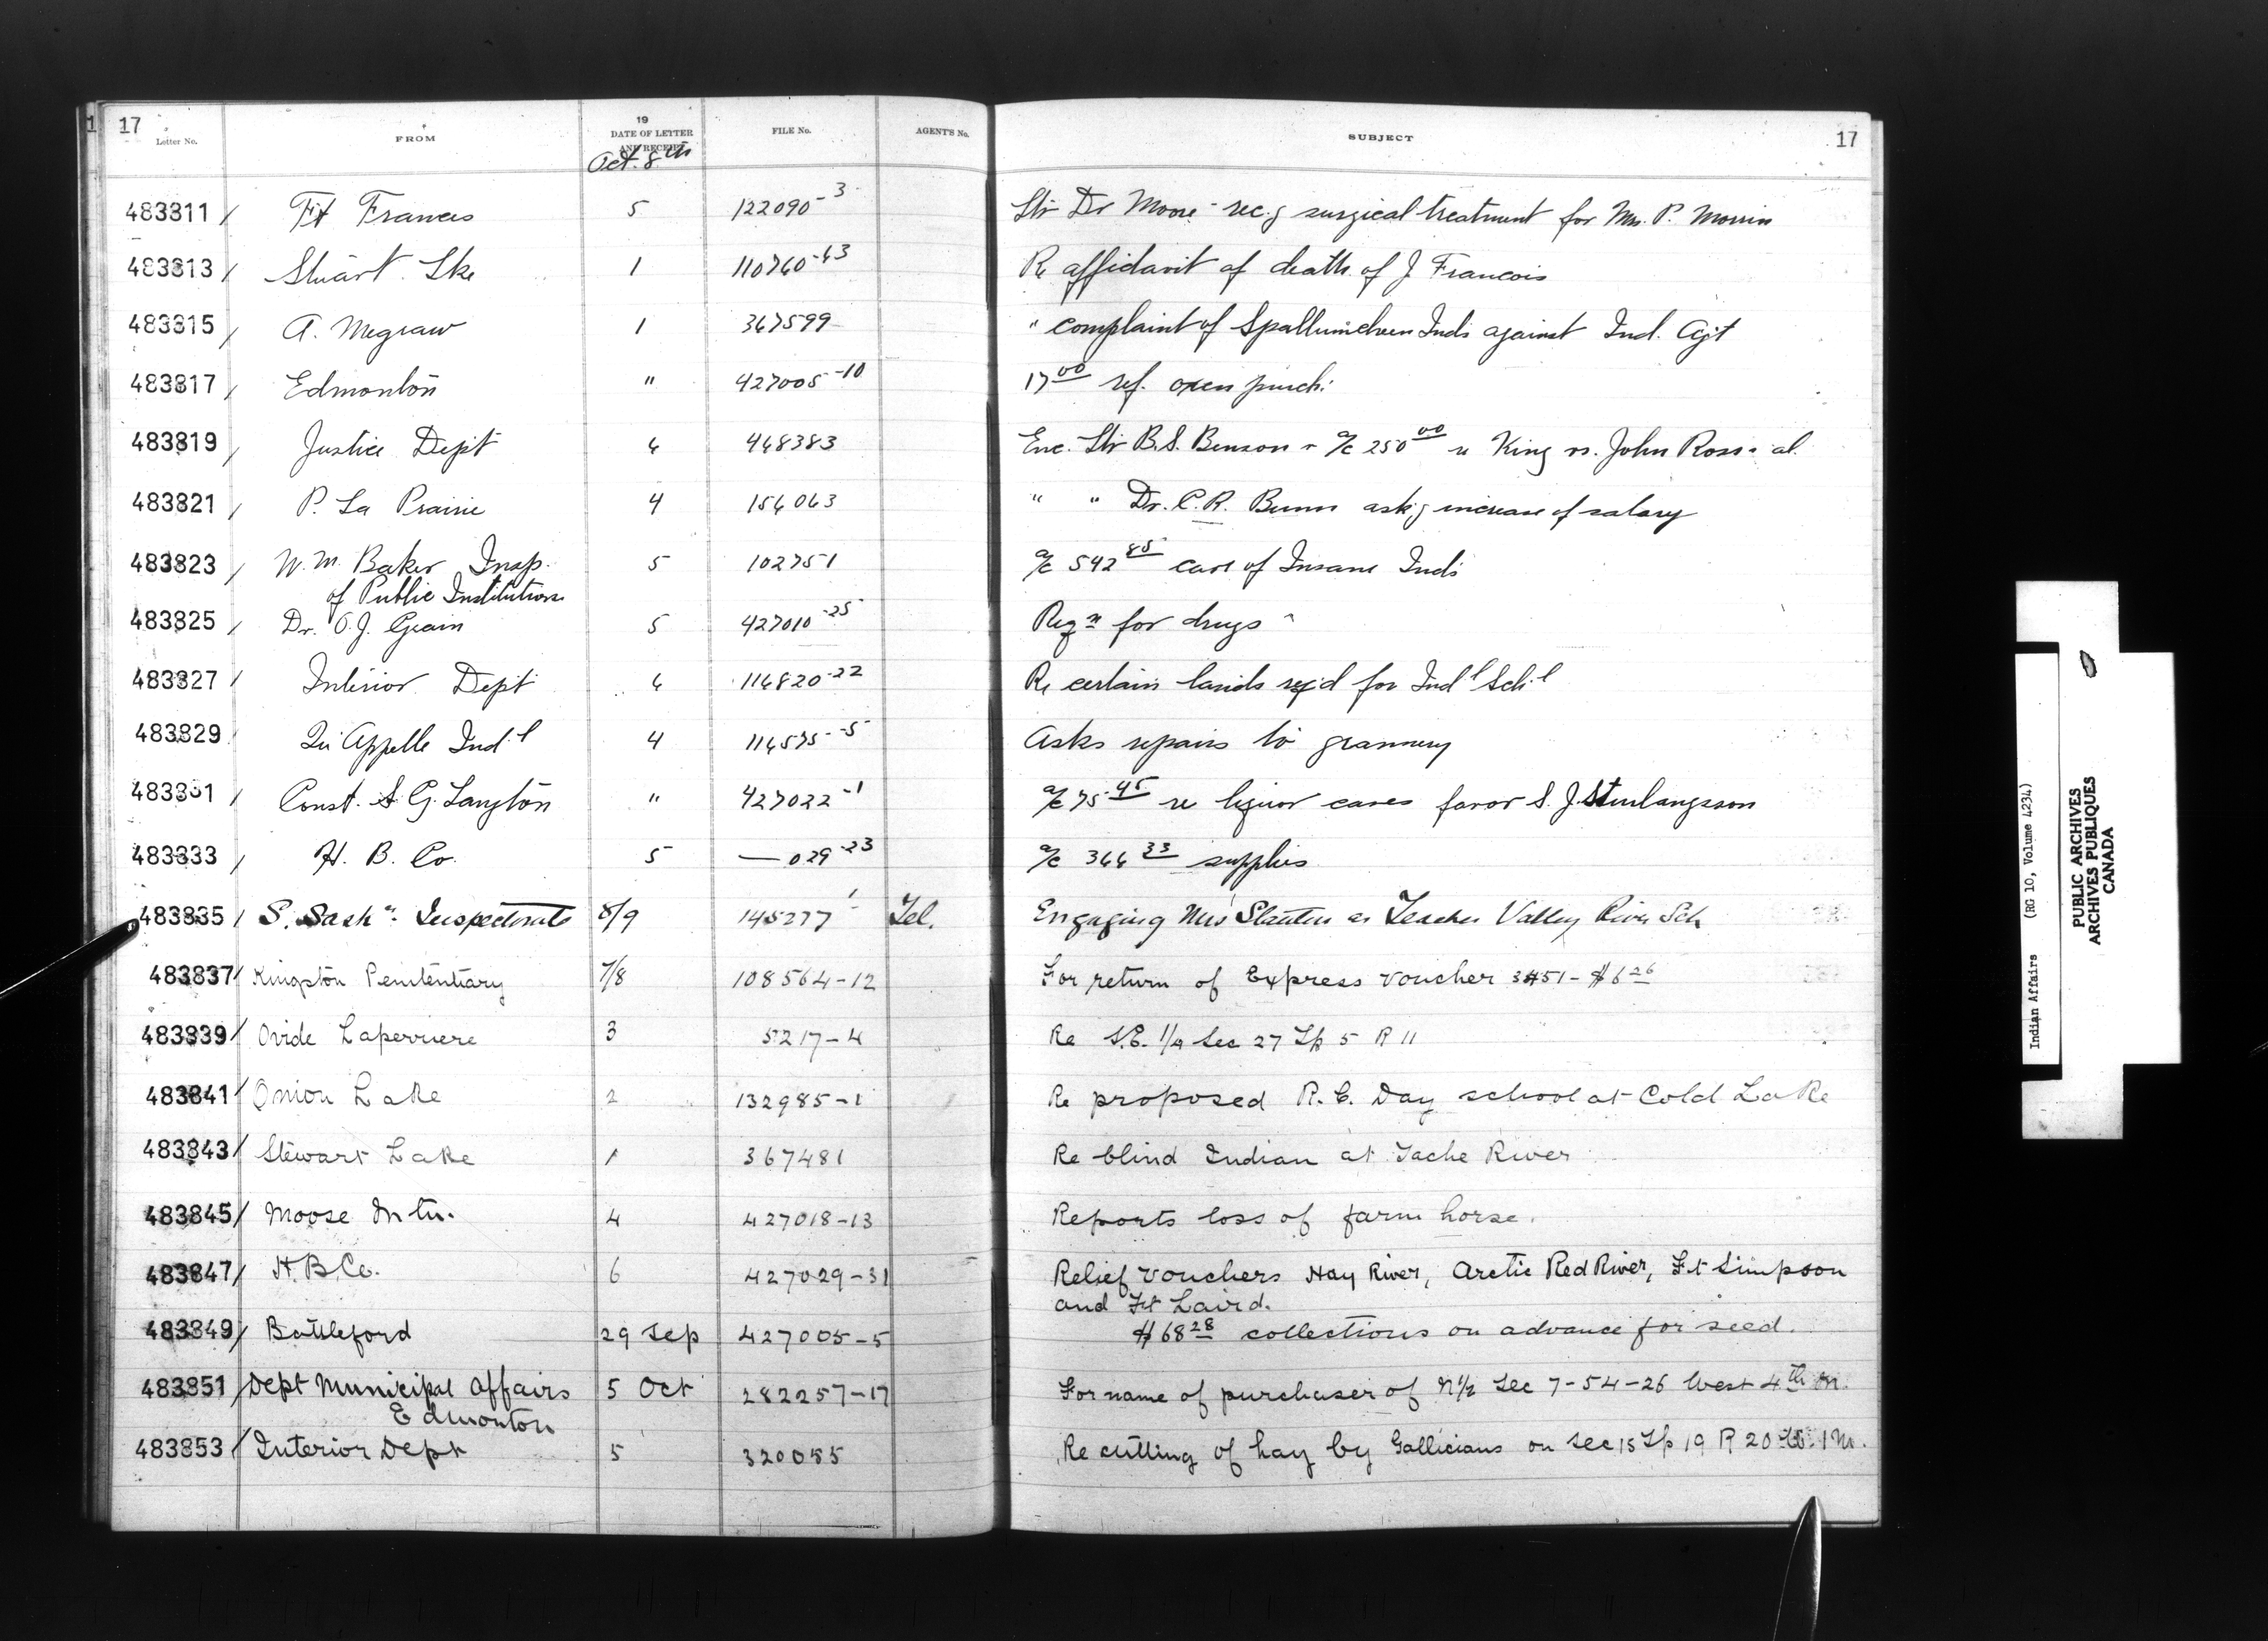 17
Letter No. FROM 19 DATE OF LETTER AND RECEIPT FILE No. AGENT'S No. SUBJECT 17
Oct. 8th
483811 / Ft Frances 5 122090-3 Ltr Dr Moore rec.g surgical treatment for Mrs. P. Morrin
483813 / Stuart Lke 1 110760-43 Re affidavit of death of J Francois
483815 / A. Megraw 1 367599 " complaint of Spallumcheen Inds against Ind. Agt
483817 / Edmonton " 427005-10 17 00 ref. oxen purch.
483819 / Justice Dept 6 448383 Enc. Ltr B.S. Benson + a/c 250 00 re King vs. John Ross et al.
483821 / P. La Prairie 4 154063 " " Dr. C.R. Bunn ask.g increase of salary
483823 / W. M. Baker Insp. 5 102751 a/c 542 85 care of Insane Inds
of Public Institutions
483825 / Dr. O.J. Grain 5 427010-25 Reqn for drugs
483827 / Interior Dept 6 114820-22 Re certain lands reqd for Ind'l Sch'l
483829 Qu'Appelle Ind'l 4 114575-5 Asks repairs to grannery
483831 / Const. S G. Langton " 427022-1 a/c 75 45 re liquor cases favor S. J.
483833 / H. B. Co. 5 — 029-23 a/c 366 33 supplies
483835 / S. Sask'n. Inspectorate 8/9 145277-1 Tel. Engaging Mrs as Teacher Valley River Sch
483837 / Kingston Penitentiary 7/8 108564-12 For return of Express voucher 3451-$6 26
483839 / Ovide Laperriere 3 5217-4 Re S.E. 1/4 Sec 27 Tp 5 R 11
483841 / Onion Lake 2 132985-1 Re proposed R.C. Day school at Cold Lake
483843 / Stewart Lake 1 367481 Re blind Indian at Tache River
483845 / Moose Mtn. 4 427018-13 Reports loss of farm horse.
483847 / H.B.Co. 6 427029-31 Relief vouchers Hay River, Arctic Red River, Ft Simpson
and Ft Laird.
483849 / Battleford 29 Sep 427005-5 $68 28 collections on advance for seed.
483851 / Dept Municipal Affairs 5 Oct 282257-17 For name of purchaser of N1/2 Sec 7-54-26 West 4th M.
Edmonton
483853 / Interior Dept 5 320055 Re cutting of hay by Gallicians on Sec 15 Tp 19 R 20 W. 1 M.
Indian Affairs (RG 10, Volume 4234)
PUBLIC ARCHIVES
ARCHIVES PUBLIQUES
CANADA